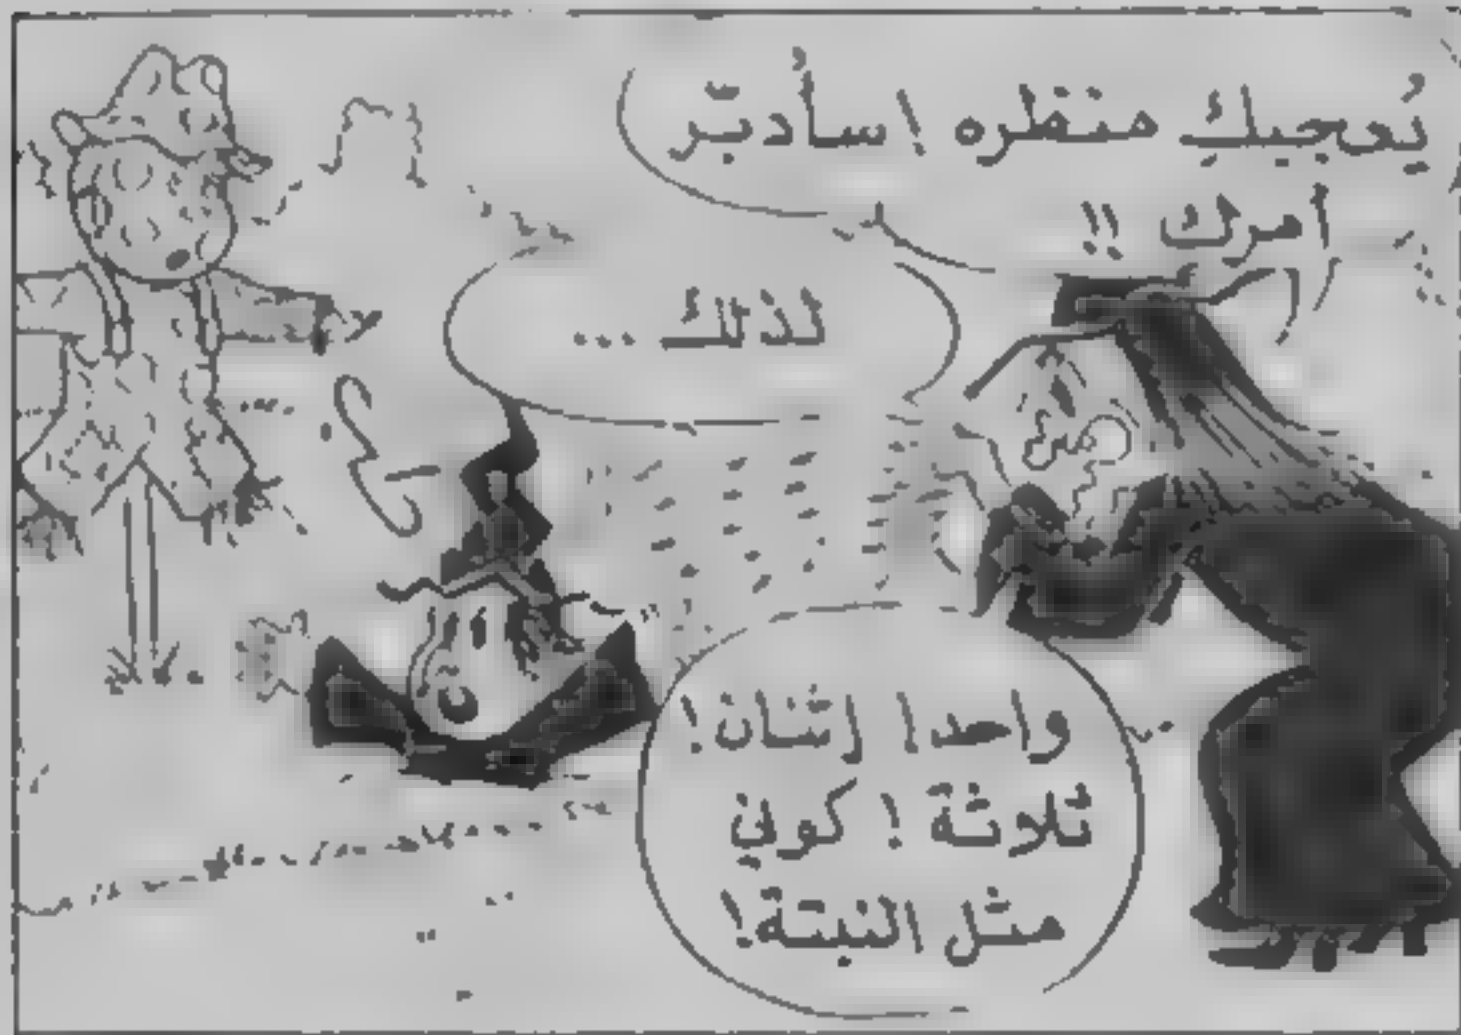 يُعجبكِ منظره ! سأُدبّر
أمرك !!
لذلك ...
واحد ! إثنان !
ثلاثة ! كوني
مثل النبتة !